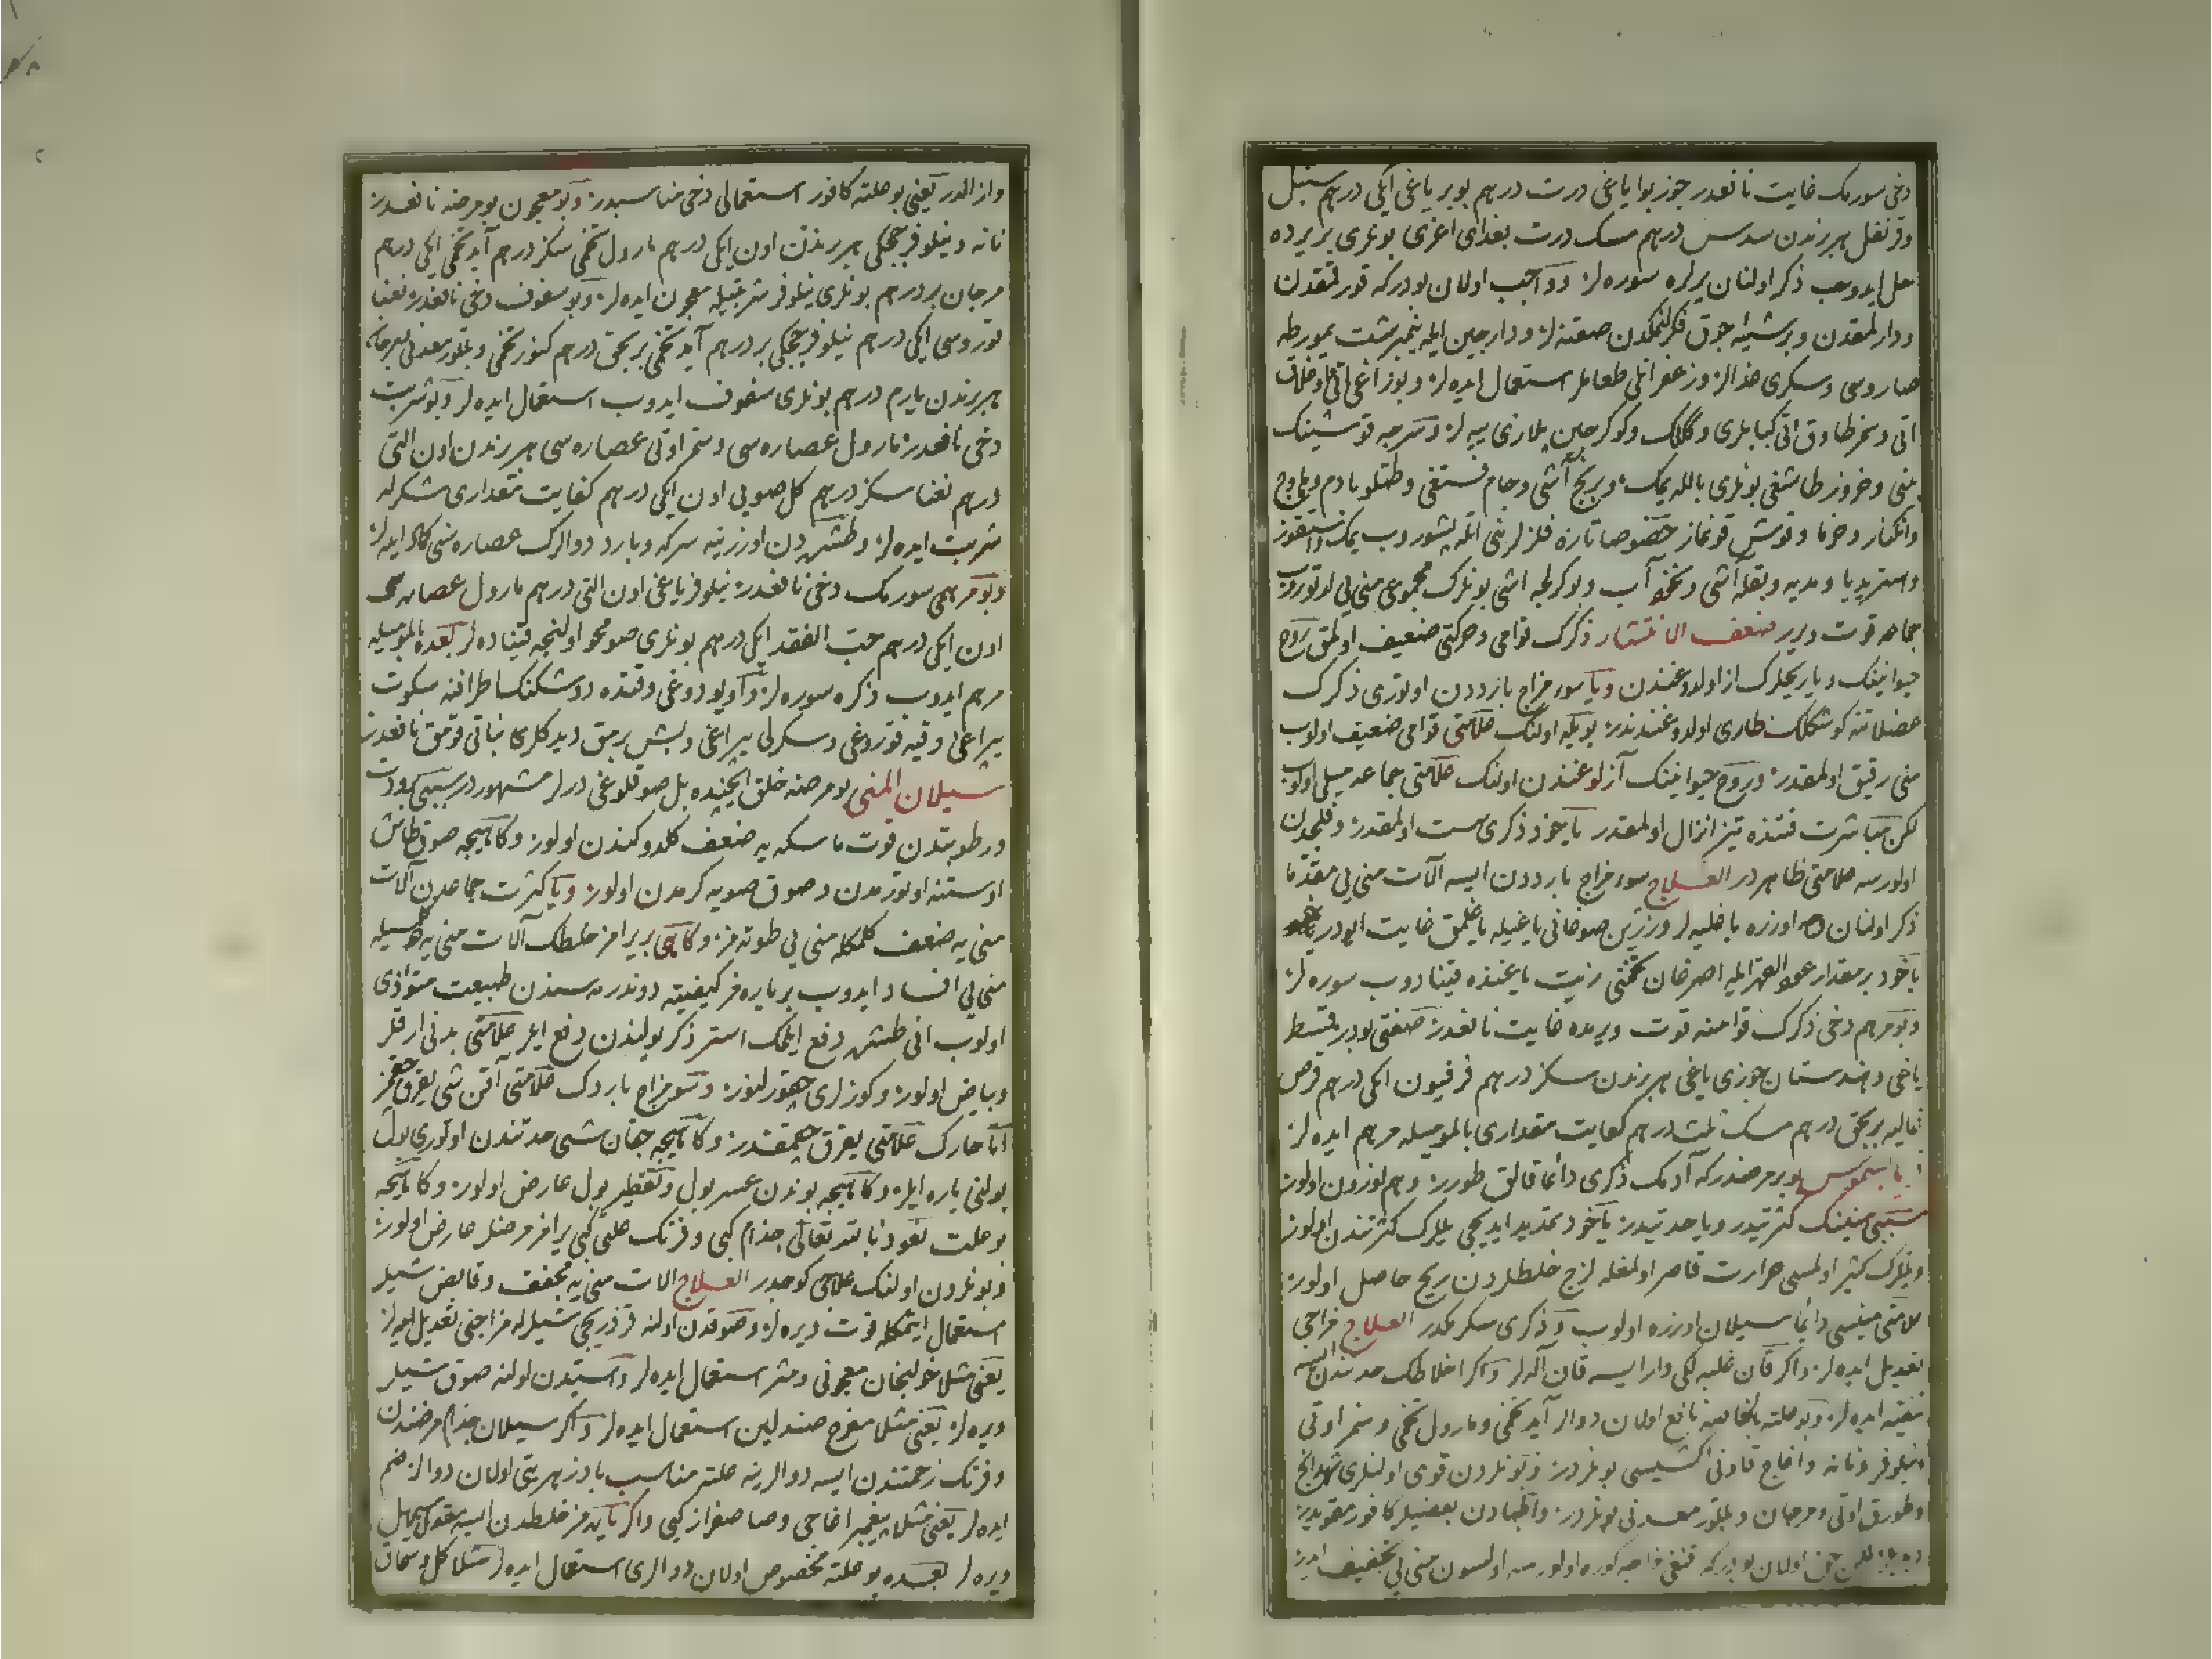 دخی سورمك غایت نافعدر جوز بوا یاغی درت درهم بوبر یاغی ایکی درهم سنبل
وقرنفل هر برندن سدس درهم مسك درت بغدای اغری بونلری بر یرده
حل ایدوب ذکر اولنان یرلره سوره لر و واجب اولان بودرکه قورلمقدن
ودارلمقدن وبر شیئه جوق فکرلنمکدن صقنه لر ودارجین ایله نیمبرشت یمورطه
صاروسی وسکری غذالر وزعفرانلی طعاملر استعمال ایده لر وبوزاغی اتی واوغلاق
اتی وسمز طاوق اتی کبابلری وککلك وکوکرجین پلازی ییه لر وسرجه قوشینك
بینی وخروز طاشغی بونلری باللله یمك وبرنج آشی وجام فستقی وطتلو بادم وهاوج
وانکنار وخرما وقوش قونماز خصوصا تازه فلزلرینی اتله پشوروب یمك وسقنقور
واستریدیا ومدیه وبقله آشی ونخود آب وبوکرلجه اشی بونلرك مجموعی منی یی اورتوروب
جماعه قوت ویرر ضعف الانتشار ذکرك قوامی وحرکتی ضعیف اولمق روح
حیوانینك ویا ریحلرك از اولدوغندن ویا سوء مزاج باردن اولوری ذکرك
عضلاتنه کوشکلك طاری اولدوغندندر بویله اولنك علامتی قوامی ضعیف اولوب
منی رقیق اولمقدر وروح حیوانینك آزلوغندن اولنك علامتی جماعه میلی اولوب
لکن مباشرت فتنده تیز انزال اولمقدر یاخود ذکری سست اولمقدر وفلجدن
اولورسه علامتی ظاهر در العلاج سوء مزاج باردن ایسه آلات منی یی مقدما
ذکر اولنان اوزره یاغلیه لر وزرین صوغانی یاغیله یاغلمق غایت ایودر
یاخود بر مقدار عود القهر ایله اصرغان تخمنی زیت یاغنده قینادوب سوره لر
وبو مرهم دخی ذکرك قوامنه قوت ویرمده غایت نافعدر صفتی بودر قسط
یاغی وهندستان جوزی یاغی هر برندن سکز درهم فرفیون ایکی درهم قرص
غالیه بر بحق درهم مسك ثلث درهم کفایت مقداری بالمومیله مرهم ایده لر
بو بر مرضدر که آدمك ذکری دائما قالق طورر وهم اوزون اولور
سببی منینك کثرتیدر ویا حدتیدر یاخود تمدید ایدیجی یللرك کثرتندن اولور
ویللرك کثیر اولمسی حرارت قاصر اولمغله لزج خلطلردن ریح حاصل اولور
علامتی منیسی دائما سیلان اوزره اولوب وذکری سکرمکدر العلاج مزاجی
تعدیل ایده لر واکر قان غلبه لکی وارایسه قان آله لر واکر اخلاطك حدتندن ایسه
تنقیه ایده لر وبو علته بالخاصه نافع اولان دوالر آید تخمی ومارول تخمی وسمز اوتی
ونیلوفر ونانه واغاج قاونی اکشیسی بونلردر وبونلردن قوی اولنلری شهدانج
وطورق اوتی ومرجان وبللور معدنی بونلردر واطبادن بعضیلر کافور مقویدر
اولان بودرکه قنغی مزاجه کوره اولورسه اولسون منی یی تجفیف ایدر
وازالدر یعنی بو علته کافور استعمالی دخی مناسبدر وبو معجون بو مرضه نافعدر
نانه ونیلوفر چچکی هر برندن اون ایکی درهم مارول تخمی سکز درهم آید تخمی ایکی درهم
مرجان بر درهم بونلری نیلوفر شربتیله معجون ایده لر وبو سفوف دخی نافعدر نعنا
قوروسی ایکی درهم نیلوفر چچکی بر درهم آید تخمی بر بحق درهم کنور تخمی وبللور معدنی ومرجان
هر برندن یارم درهم بونلری سفوف ایدوب استعمال ایده لر وبو شربت
دخی نافعدر مارول عصاره سی وسمز اوتی عصاره سی هر برندن اون التی
درهم نعنا سکز درهم کل صویی اون ایکی درهم کفایت مقداری شکرله
شربت ایده لر وطشره دن اوزرینه سرکه وبارد دوالرك عصاره سنی
وبو مرهمی سورمك دخی نافعدر نیلوفر یاغی اون التی درهم مارول عصاره سی
اون ایکی درهم حب الفقد ایکی درهم بونلری صو محو اولنجه قیناده لر بعده بالمومیله
مرهم ایدوب ذکره سوره لر واویودوغی وقتده دوشکنك اطرافنه سکوت
یپراغی وقیه قوروغی وسکرلی یپراغی وبش پرمق دیدکلری نباتی قومق نافعدر
سیلان المنی بو مرضه خلق ایچنده بل صوقلوغی درلر مشهوردر سببی برودت
ورطوبتدن قوت ماسکه یه ضعف کلدوکندن اولور وکاهیجه صوق طاش
اوستنه اوتورمدن وصوق صویه کرمدن اولور ویا کثرت جماعدن آلات
منی یه ضعف کلمکله منی یی طوته مز وکاهی بر یرامز خلطك آلات منی یه
منی یی افساد ایدوب بر یاره مز کیفیته دوندرمسندن طبیعت متؤذی
اولوب انی طشره دفع ایلمك استر ذکر یولندن دفع ایلر علامتی بدنی ارقلر
وبیاض اولور وکوزلری چقورلنور وسوء مزاج باردك علامتی آقن شی یقرق چقمز
اما حارك علامتی یقرق چقمقدر وکاهیجه چقان شی حدتندن اوتوری بول
یولنی یاره ایلر وکاهیجه بوندن عسر بول وتقطیر بول عارض اولور وکاهیجه
بو علت نعوذ بالله تعالی جذام کبی وفرنك علتی کبی یرامز مرضلر عارض اولور
وبونلردن اولنك علاجی کوجدر العلاج آلات منی یه مجفف وقابض شیلر
استعمال ایتمکله قوت ویره لر وصوقدن اولنه قزدریجی شیلرله مزاجنی تعدیل ایده لر
یعنی مثلا خولنجان معجونی ومثر استعمال ایده لر واسیدن اولنه صوق شیلر
ویره لر یعنی مثلا مفرح صندلین استعمال ایده لر واکر سیلان جذام مرضندن
وفرنك زحمتندن ایسه دوالرینه علته مناسب پادزهریتی اولان دوالر ضم
ایده لر یعنی مثلا پیغمبر اغاجی وصاصفراز کبی واکر یرامز خلطدن ایسه مقدما مسهل
ویره لر بعده بو علته مخصوص اولان دوالری استعمال ایده لر مثلا کل